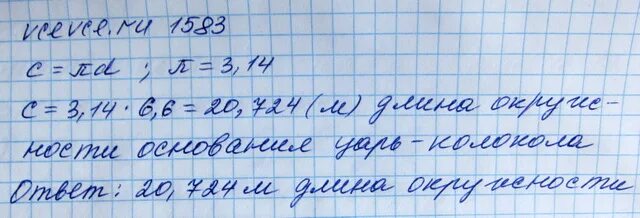 vcevce.ru 1583
c = πd ; π = 3,14
c = 3,14 · 6,6 = 20,724 (м) длина окруж-
ности основания царь-колокола
Ответ: 20,724 м длина окружности